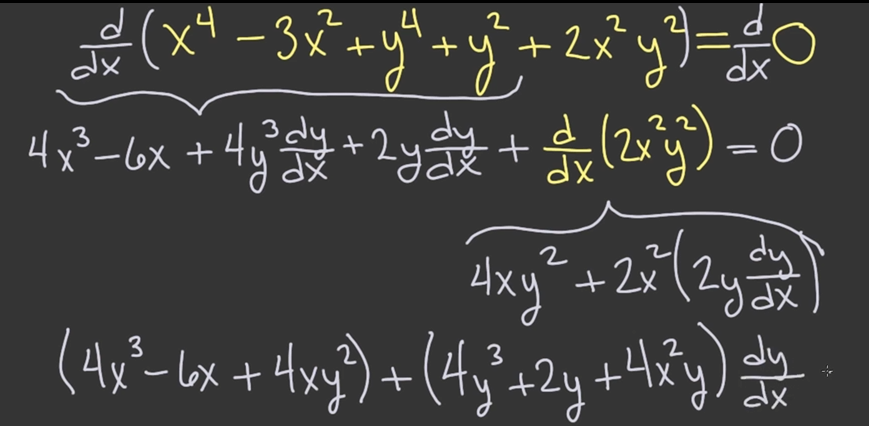 d/dx (x⁴ − 3x² + y⁴ + y² + 2x² y²) = d/dx 0
4x³ − 6x + 4y³ dy/dx + 2y dy/dx + d/dx (2x²y²) = 0
4xy² + 2x² (2y dy/dx)
(4x³ − 6x + 4xy²) + (4y³ + 2y + 4x²y) dy/dx